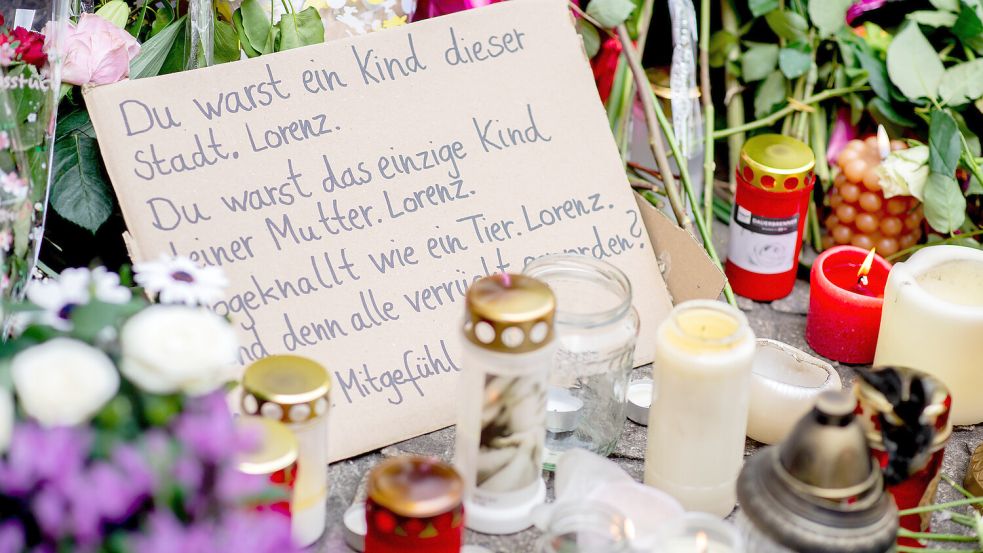 Du warst ein Kind dieser
Stadt. Lorenz.
Du warst das einzige Kind
deiner Mutter. Lorenz.
Abgeknallt wie ein Tier. Lorenz.
Sind denn alle verrückt geworden?
Mitgefühl